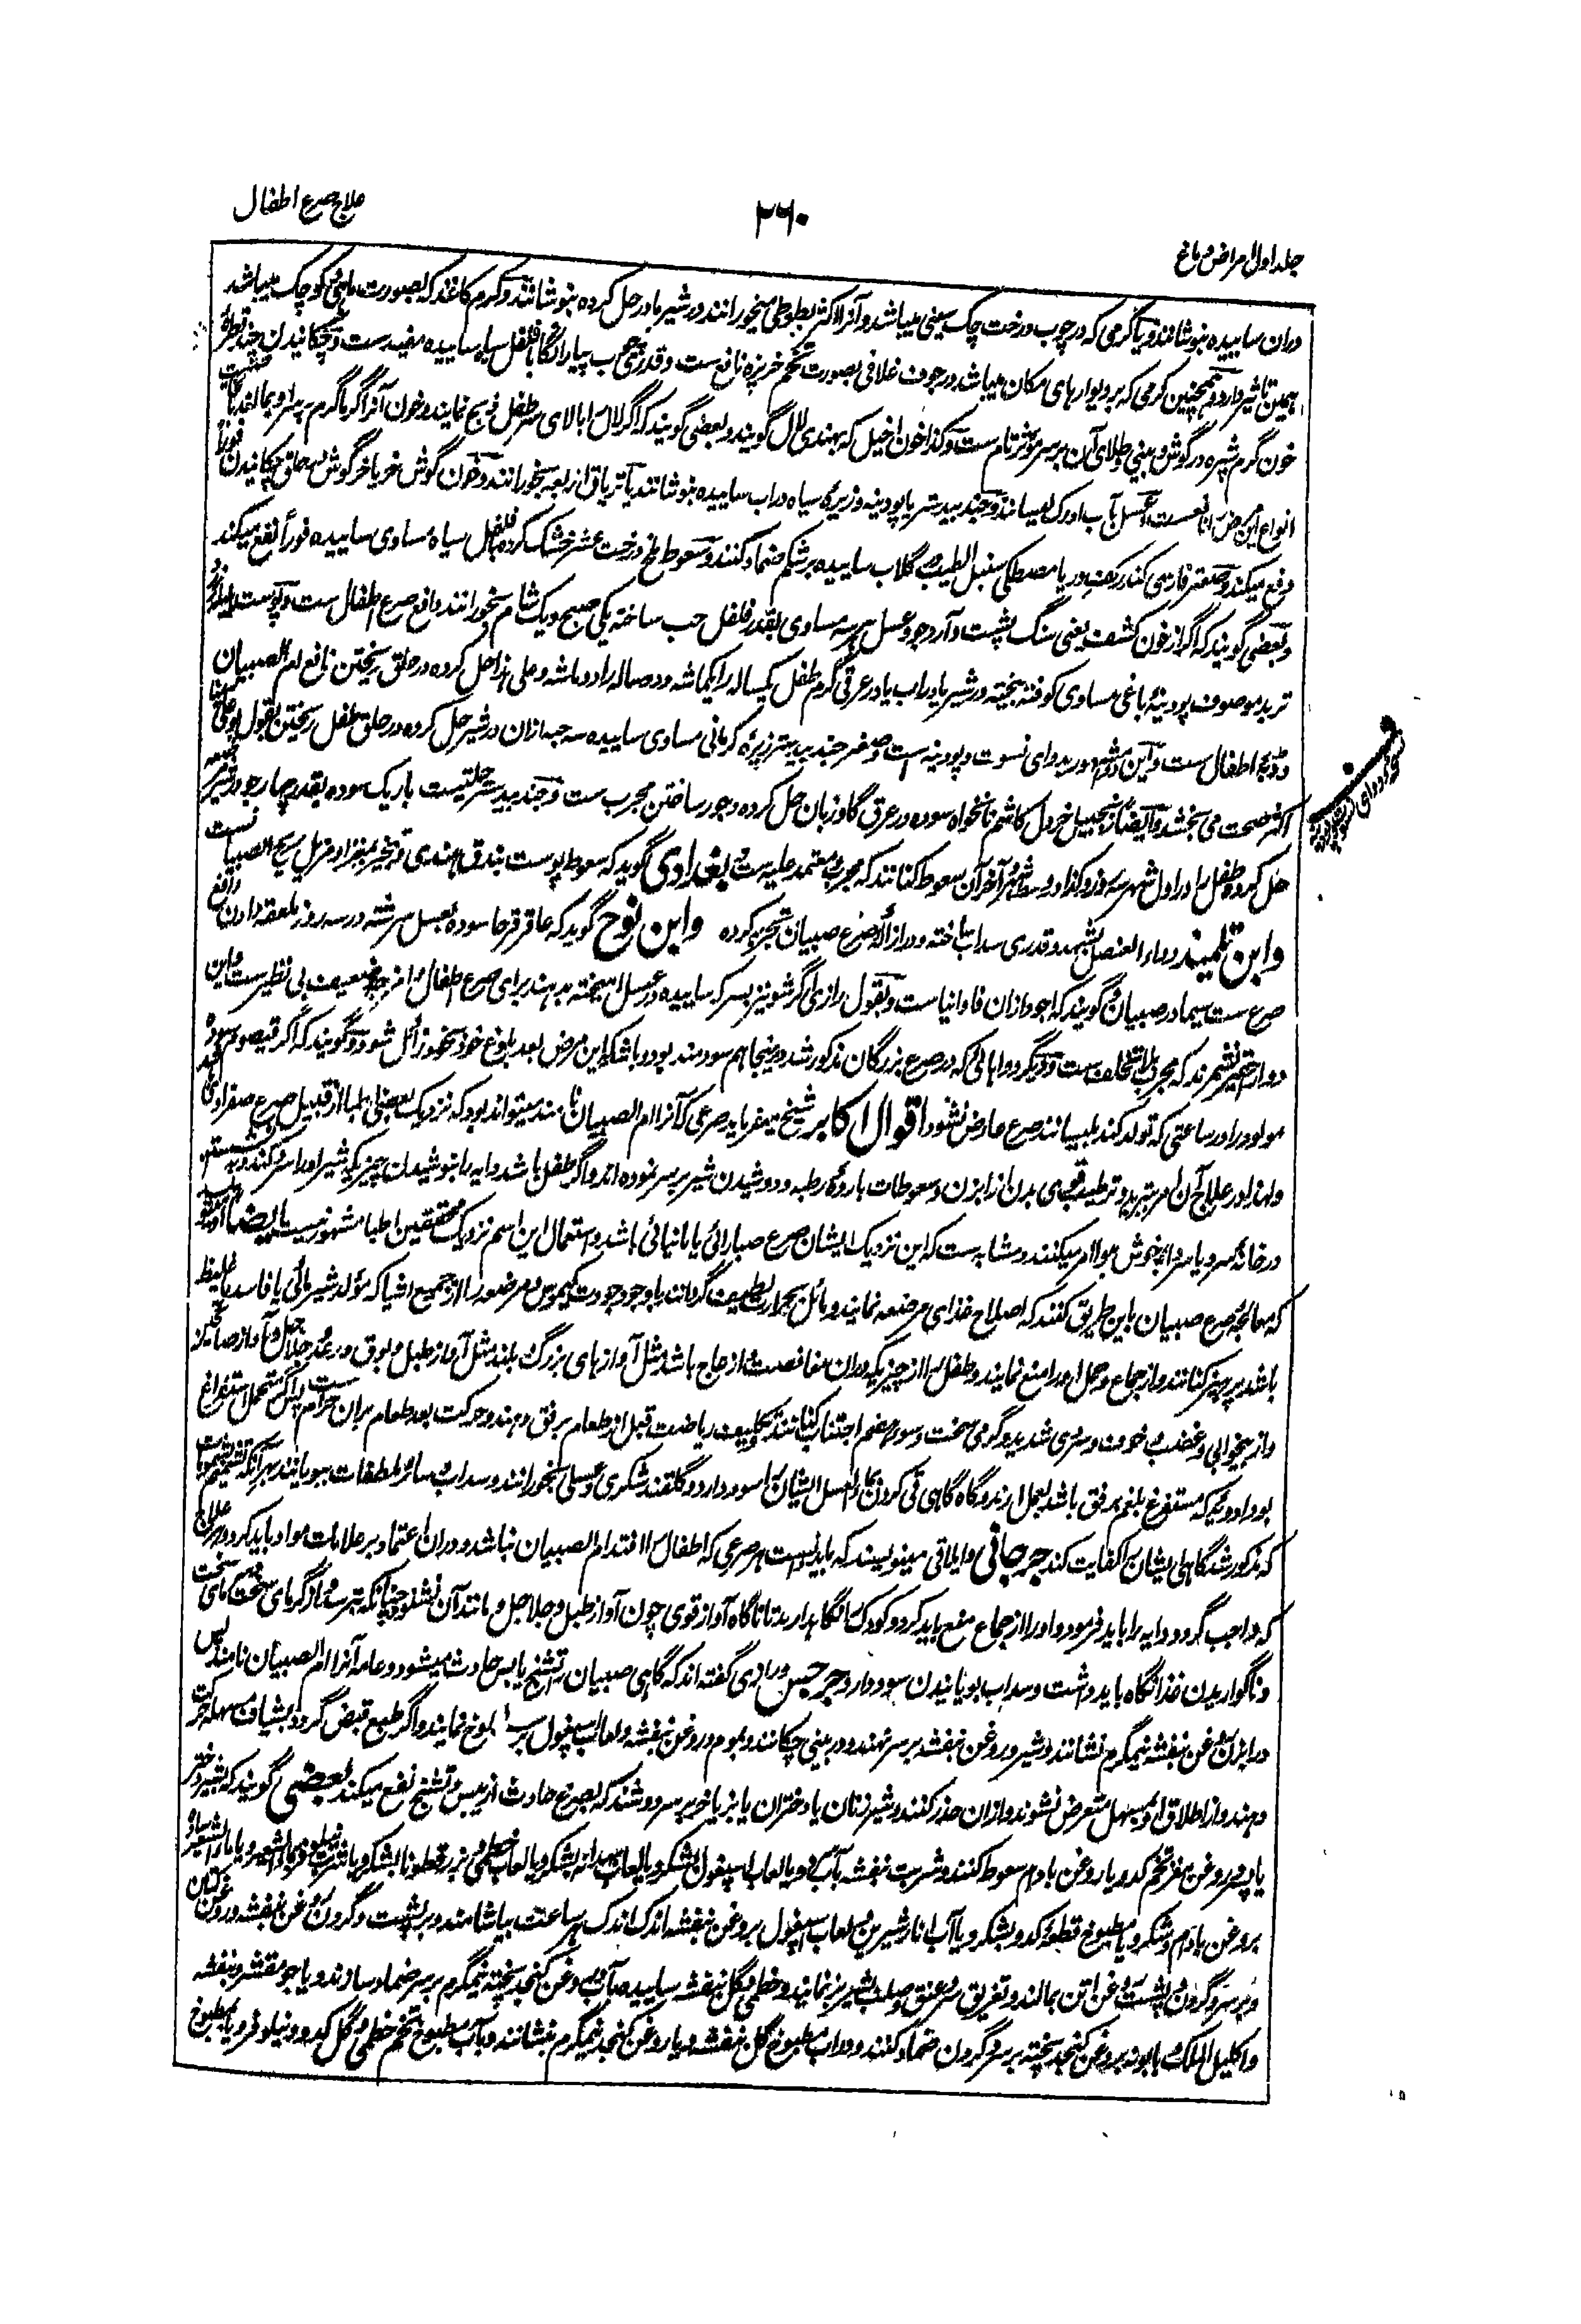 جلد اول امراض دماغ
۳۶۰
علاج صرع اطفال
دران ساییده بنوشانند و یا کرمی که در چوب درخت چک سینی میباشد و آنرا اکثر بطوطی میخورانند در شیر مادر حل کرده بنوشانند و کرم کاغذ که بصورت ماهی کوچک میباشد
همین تاثیر دارد و همچنین کرمی که بر دیوارهای مکان میباشد در جوف غلافی بصورت تخم خرپزه نافع ست و قدری با فلفل سیاه ساییده مفیدست و چکانیدن چند قطره
خون گرم شپره در گوش و بینی و طلای آن بر سر موثر تام ست و کذا خون اخیل که بهندی لال گویند و بعضی گویند که اگر لال را بالای سر طفل ذبح نمایند و خون آنرا گرماگرم بر سر او بمالند
انواع این مرض را نافع ست و عسل بآب ادرک لیسانند و جندبیدستر با پودینه و زیره سیاه در آب ساییده بنوشانند یا تریاق اربعه بخورانند و خون گوش خر یا خرگوش در حلق چکانیدن فورا
دفع میکند و صعتر فارسی کندر یا مصطکی سنبل الطیب گلاب ساییده بر شکم ضماد کنند و سعوط بیخ درخت عشر خشک کرده با فلفل سیاه مساوی ساییده فوراً نفع میکند
و بعضی گویند که اگر از خون کشف یعنی سنگ پشت و آرد جو و عسل هر سه مساوی بقدر فلفل حب ساخته یکی صبح و یک شام بخورانند دافع صرع اطفال ست و پوست
تربد موصوف پودینه باغی مساوی کوفته بیخته در شیر یا در آب یا در عرقی گرم طفل یکساله را یکماشه و دو ساله را دو ماشه و علی هذا حل کرده در حلق ریختن نافع ام الصبیان
و ڈبه اطفال ست و این مشهور بدوای نسوت و پودینه است و صعتر جندبیدستر زیره کرمانی مساوی ساییده سه حبه ازان در شیر حل کرده در حلق طفل ریختن بقول بوعلی
اکثر صحت می بخشد و ایضاً زنجبیل خردل کاشم نانخواه سوده در عرق گاوزبان حل کرده وجور ساختن مجرب ست و جندبیدستر حلتیت باریک سوده بقدر چهار جو در شیر
حل کرده طفل را در اول شهر سه روز و کذا در وسط شهر و آخر آن سعوط کنانند که مجرب و معتمد علیه ست بغدادی گوید که سعوط پوست بندق هندی و تبخیر مزیل ریح الصبیان ست
و ابن تلمیذ دواء العنصل بشهد و قدری سداب ساخته و در ازاله صرع صبیان تجربه کرده و ابن نوح گوید که عاقرقرحا سوده بعسل سرشته در سه روز ملعقه دادن دافع
صرع ست سیما در صبیان و گویند که اجود ازان فاوانیاست و بقول رازی اگر شونیز بسرکه ساییده در عسل آمیخته بدهند برای صرع اطفال ضعیف بی نظیرست و این
دوا را حقیر نشمرند که مجرب بلا تخلف ست و دیگر دواهائی که در صرع بزرگان مذکور شد درینجا هم سودمند بود و باشد که این مرض بعد بلوغ خود بخود زائل شود و گویند که اگر قیصوم
مولود را در ساعتی که تولد کند بلیسانند صرع عارض نشود اقوال اکابر شیخ میفرماید صرعی که آنرا ام الصبیان نامند میتواند بود که نزدیک بعضی اطبا از قبیل صرع صفراوی
و لهذا در علاج آن امر بتبرید و ترطیب بدن از ابزن و سعوطات بارده رطبه و دوشیدن شیر بر سر نموده اند و اگر طفل باشد دایه را بنوشیدن چیزیکه شیر او را سرد کند و نشستن
در خانه سرد یا سردابه خوش هوا امر میکنند و مشابه است که این نزدیک ایشان صرع صبارائی یا مانیائی باشد و استعمال این اسم نزدیک محققین اطبا مشهور نیست ایضا
که معالجه صرع صبیان باین طریق کنند که اصلاح غذای مرضعه نمایند و مائل بحرارت لطیف گردانند با وجود جودت کیموس و مرضعه را از جمیع اشیا که مولد شیر مائی یا فاسد یا غلیظ
باشد پرهیز کنانند و از جماع و حمل او را منع نمایند و طفل را از چیزیکه دران مفاجات و ازعاج باشد مثل آوازهای بزرگ بلند مثل آواز طبل و بوق و رعد و جلاجل و آواز صائحه
و از بیخوابی و غضب و خوف و سردی شدید و گرمی سخت و سوء هضم اجتناب کنانند و تکلیف ریاضت قبل از طعام برفق دهند و حرکت بعد طعام بران حرام ست پس اگر متحمل استفراغ
بود ادویه که مستفرغ بلغم برفق باشد بعمل آرند و گاه گاهی قی کردن بماء العسل ایشان را سود دارد و گلقند شکری و عسلی بخورانند و سداب و سائر ملطفات ببویانند
که مذکور شد گاهی ایشان را کفایت کند جرجانی و ایلاقی مینویسند که باید دانست هر صرعی که اطفال را افتد ام الصبیان نباشد و دران اعتماد بر علامات مواد باید کرد و هر علاج
که واجب گردد دایه را باید فرمود و او را از جماع منع باید کرد و کودک را نگاهدارند تا ناگاه آواز قوی چون آواز طبل و جلاجل و مانند آن نشنود چنانکه نترسد و از گرمای سخت سرمای سخت
و ناگواریدن غذا نگاه باید داشت و سداب بویانیدن سود دارد جرجیس و رازی گفته اند که گاهی صبیان را تشنج یابس حادث میشود و عامه آنرا ام الصبیان نامند پس
در ابزن روغن بنفشه نیمگرم نشانند و شیر و روغن بنفشه بر سر نهند و در بینی چکانند و بموم و روغن بنفشه و لعاب اسپغول بر سر تمریخ نمایند و اگر طبع قبض گردد بشیاف مسهله حرکت
دهند و از اطلاق او بمسهل متعرض نشوند و ازان حذر کنند و شیر زنان یا دختران یا بز یا خر بر سر دوشند که بصرع حادث از یبس و تشنج نفع میکند بعضی گویند که بشیر دختر
یا پسر و روغن مغز تخم کدو یا روغن بادام سعوط کنند و شربت بنفشه بآب کدو یا لعاب اسپغول بشکر و یا لعاب بهدانه بشکر و یا لعاب خطمی و بزر قطونا بشکر
بروغن بادام و شکر و یا مطبوخ قطعه کدو بشکر و یا آب انار شیرین و لعاب اسپغول بروغن بنفشه اندک اندک هر ساعت بیاشامند و بر پشت و گردن روغن بنفشه و روغن
و بر سر و گردن و پشت روغن بمالند و تغریق سر و عنق و صلب بشیر بز نمایند و خطمی و گل بنفشه ساییده بآب و روغن کنجد پخته نیمگرم بر سر ضماد سازند و یا جو مقشر و بنفشه
و اکلیل الملک و بابونه بروغن کنجد پخته بر سر و گردن ضماد کنند و در آب مطبوخ گل بنفشه و یا روغن کنجد نیمگرم بنشانند و بآب مطبوخ تخم خطمی و گل کدو و نیلوفر و یا مطبوخ